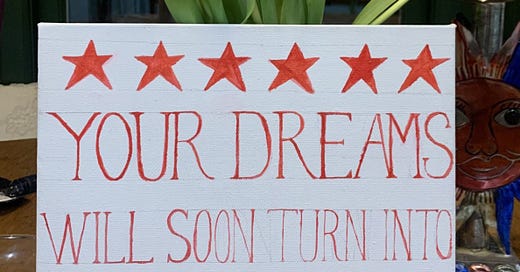 YOUR DREAMS
WILL SOON TURN INTO